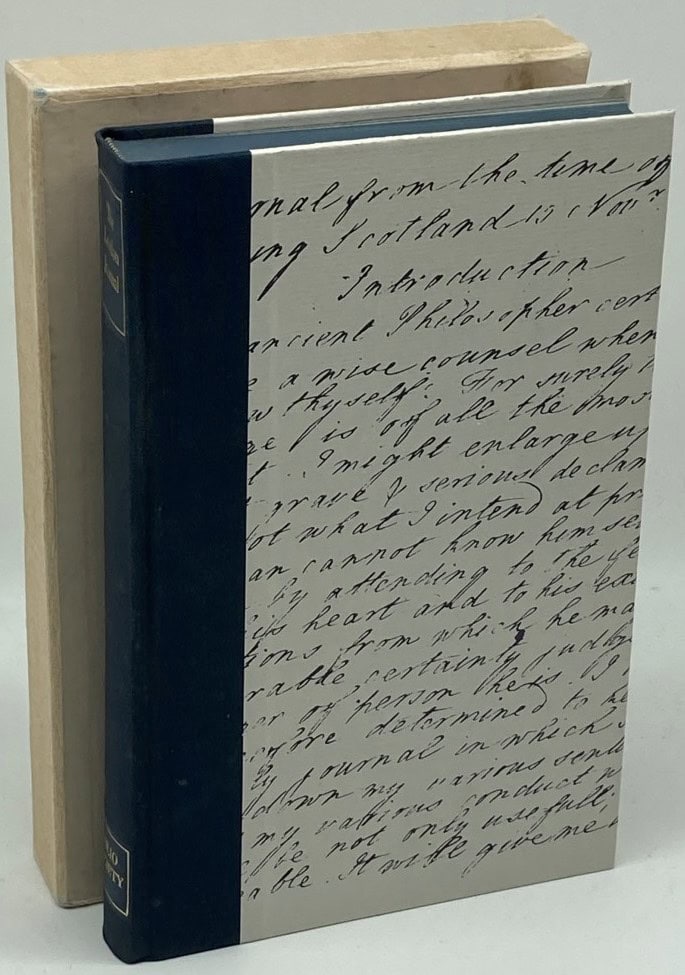 onal from the time of
ing Scotland 15 Novr.
Introduction
ancient Philosopher cert
e a wise counsel when
w thyself: For surely
ge is of all the mos
t. I might enlarge up
grave & serious declam
ot what I intend at pr
an cannot know himse
by attending to the fe
his heart and to his ex
tions from which he ma
rable certainty judg
ner of person he is. I
efore determined to ke
ly journal in which
down my various sent
my various conduct w
be not only usefull,
able. It will give me